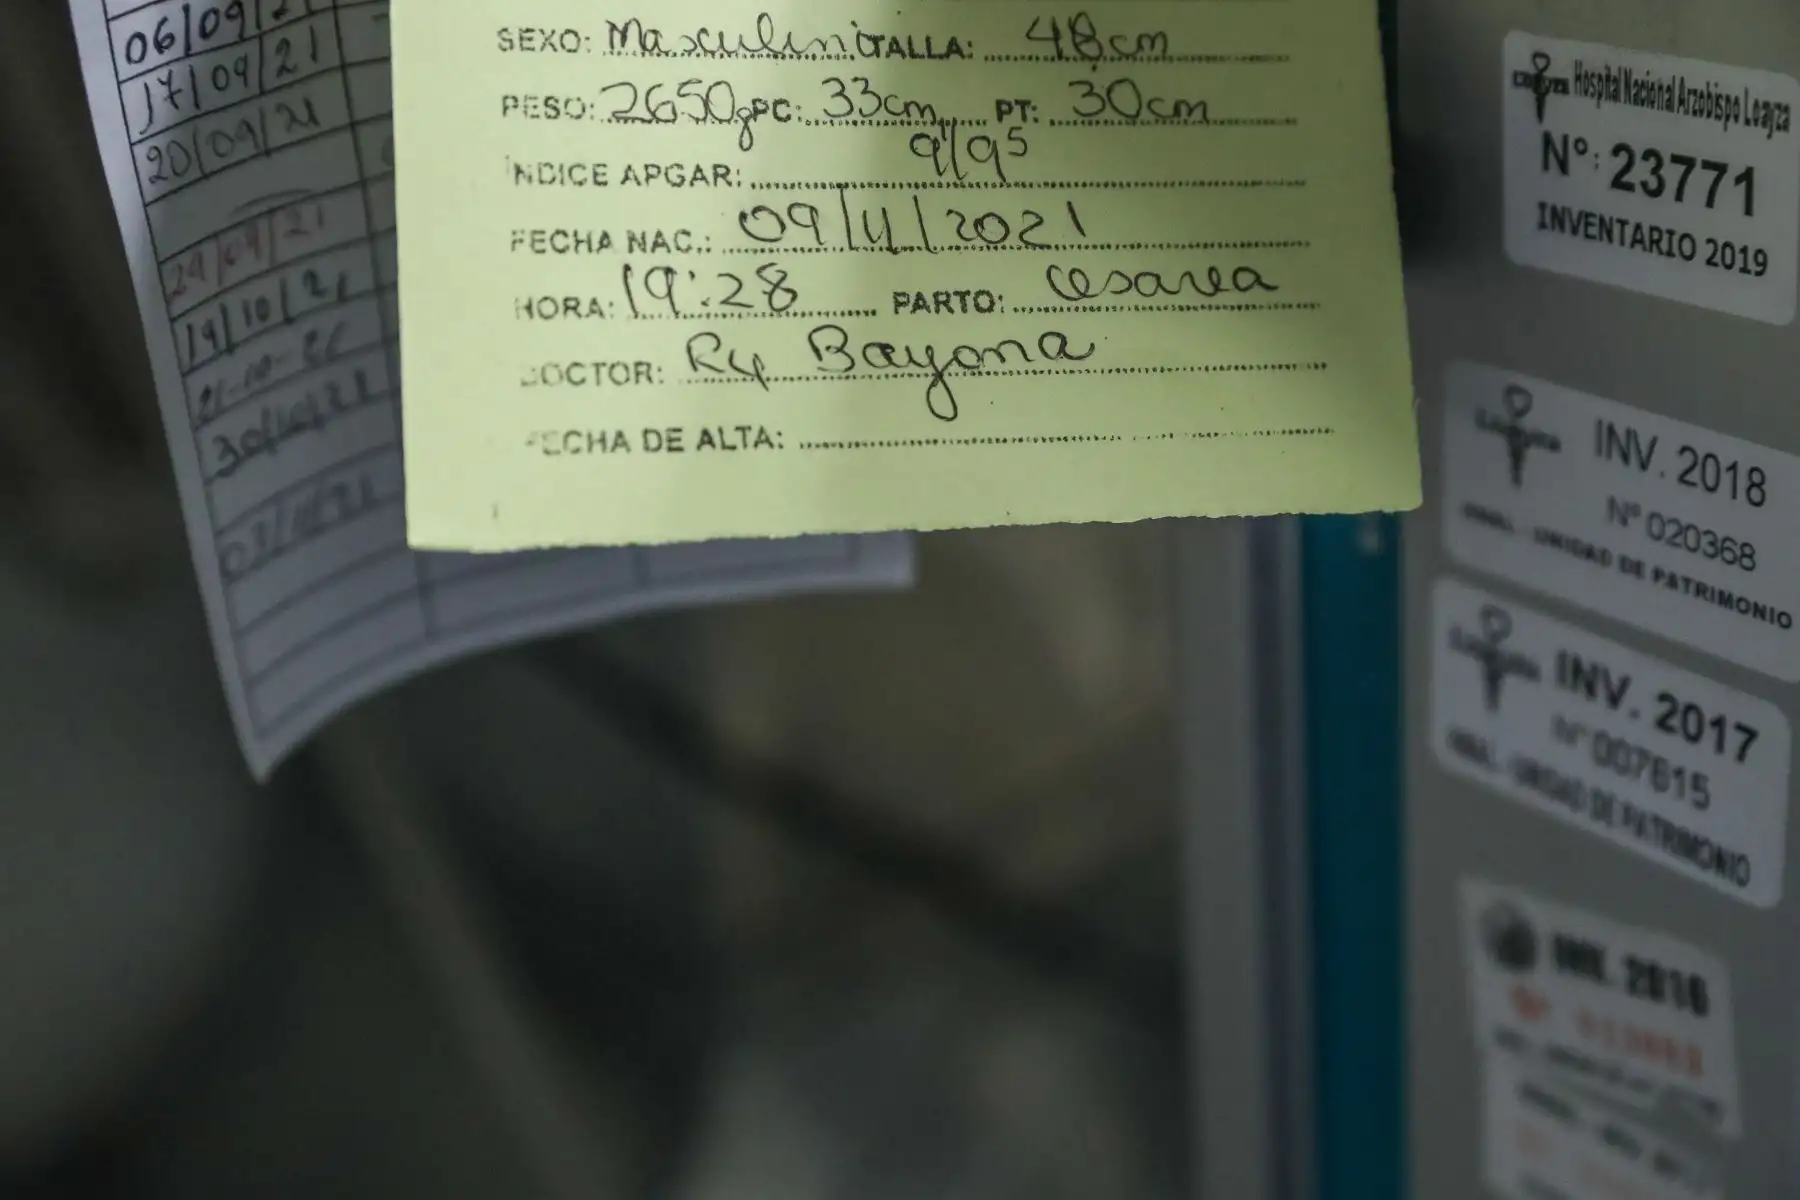 06/09/21
17/09/21
20/09/21
29/09/21
19/10/21
30/10/21
03/11/21
SEXO: Masculino TALLA: 48cm
PESO: 2650g PC: 33cm PT: 30cm
INDICE APGAR: 9'/95
FECHA NAC.: 09/11/2021
HORA: 19:28 PARTO: Cesarea
DOCTOR: Bayona
FECHA DE ALTA:
Hospital Nacional Arzobispo Loayza
N°: 23771
INVENTARIO 2019
Loayza
INV. 2018
N° 020368
HNAL - UNIDAD DE PATRIMONIO
Loayza
INV. 2017
N° 007615
HNAL - UNIDAD DE PATRIMONIO
INV. 2016